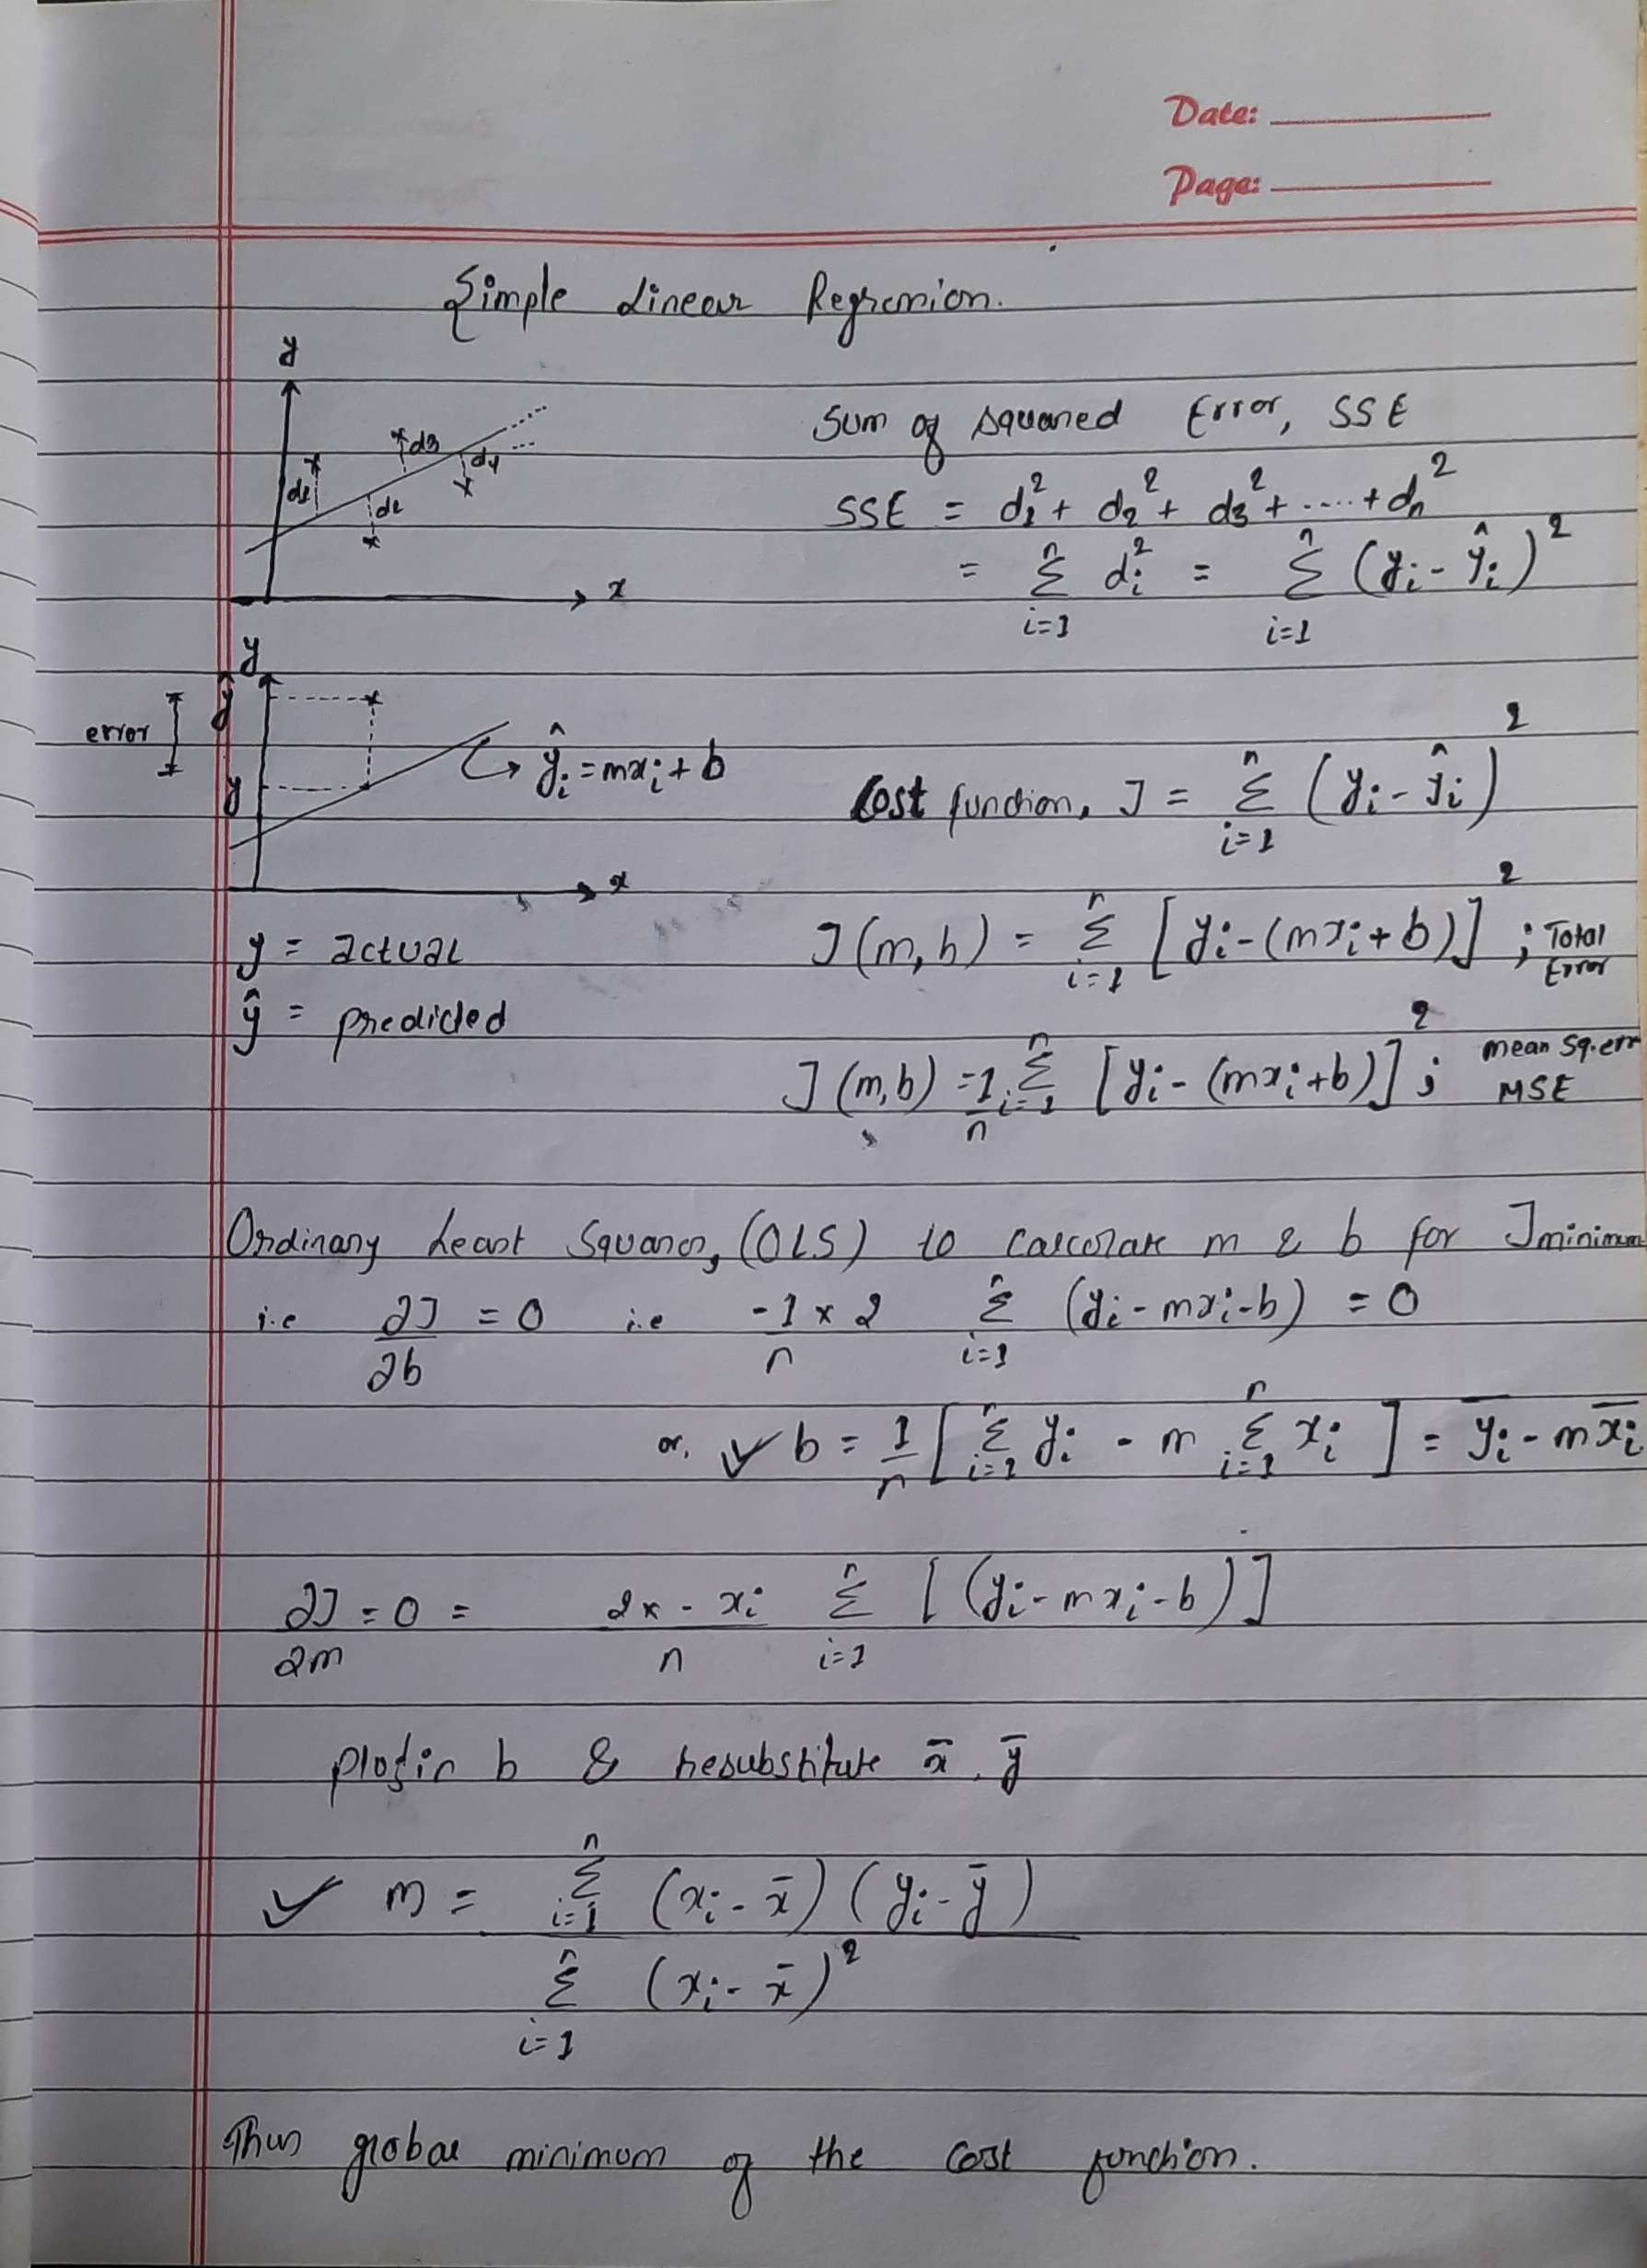 Date:
Page:
Simple Linear Regression.
y
d1 d2 d3 d4
x
Sum of squared Error, SSE
SSE = d₁² + d₂² + d₃² + ..... + dₙ²
= Σᵢ₌₁ⁿ dᵢ² = Σᵢ₌₁ⁿ (yᵢ - ŷᵢ)²
y
error
ŷ
y
ŷᵢ = mxᵢ + b
x
Cost function, J = Σᵢ₌₁ⁿ (yᵢ - ŷᵢ)²
y = actual
J(m,b) = Σᵢ₌₁ⁿ [yᵢ - (mxᵢ + b)]² ; Total Error
ŷ = predicted
J(m,b) = 1/n Σᵢ₌₁ⁿ [yᵢ - (mxᵢ + b)]² ; mean sq. err MSE
Ordinary Least Squares, (OLS) to calculate m & b for J minimum
i.e ∂J/∂b = 0 i.e -1 × 2/n Σᵢ₌₁ⁿ (yᵢ - mxᵢ - b) = 0
or, ✓ b = 1/n [Σᵢ₌₁ⁿ yᵢ - m Σᵢ₌₁ⁿ xᵢ] = y̅ᵢ - mx̅ᵢ
∂J/∂m = 0 = 2x - xᵢ/n Σᵢ₌₁ⁿ [(yᵢ - mxᵢ - b)]
plugin b & resubstitute x̄, ȳ
✓ m = Σᵢ₌₁ⁿ (xᵢ - x̄)(yᵢ - ȳ)
Σᵢ₌₁ⁿ (xᵢ - x̄)²
Thus global minimum of the cost function.